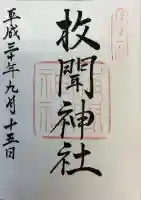 枚聞神社
平成三十年九月十五日